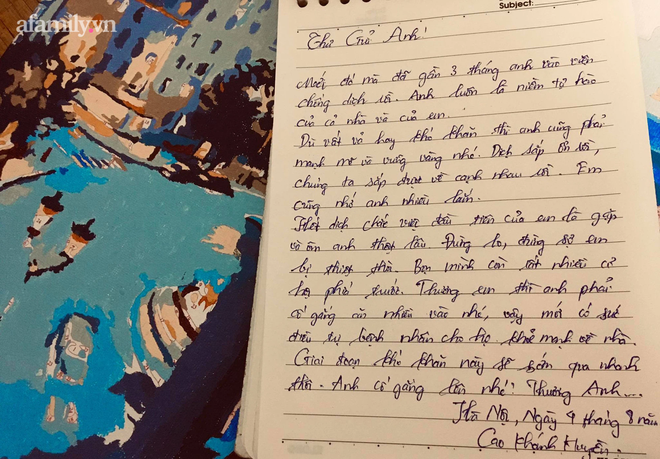 afamily.vn
Subject:
Thư Gửi Anh!
Mới đó mà đã gần 3 tháng anh vào viện
chống dịch rồi. Anh luôn là niềm tự hào
của cả nhà và của em.
Dù vất vả hay khó khăn thì anh cũng phải
mạnh mẽ và vững vàng nhé. Dịch sắp ổn rồi,
chúng ta sắp được về cạnh nhau rồi. Em
cũng nhớ anh nhiều lắm.
Hết dịch chắc việc đầu tiên của em là gặp
và ôm anh thật lâu. Đừng lo, đừng sợ em
bị thiệt thòi. Bọn mình còn rất nhiều cơ
hội phía trước. Thương em thì anh phải
cố gắng ăn nhiều vào nhé, vậy mới có sức
điều trị bệnh nhân cho họ khoẻ mạnh về nhà.
Giai đoạn khó khăn này sẽ sớm qua nhanh
thôi. Anh cố gắng lên nhé! Thương Anh...
Hà Nội, Ngày 9 tháng 8 năm
Cao Khánh Huyền.